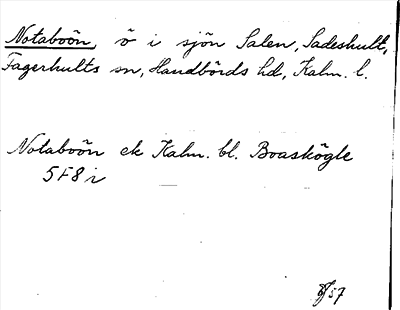 Notaboön, ö i sjön Salen, Sadeshult,
Fagerhults sn, Handbörds hd, Kalm. l.
Notaboön ek Kalm. bl. Boaskögle
5F8i
57